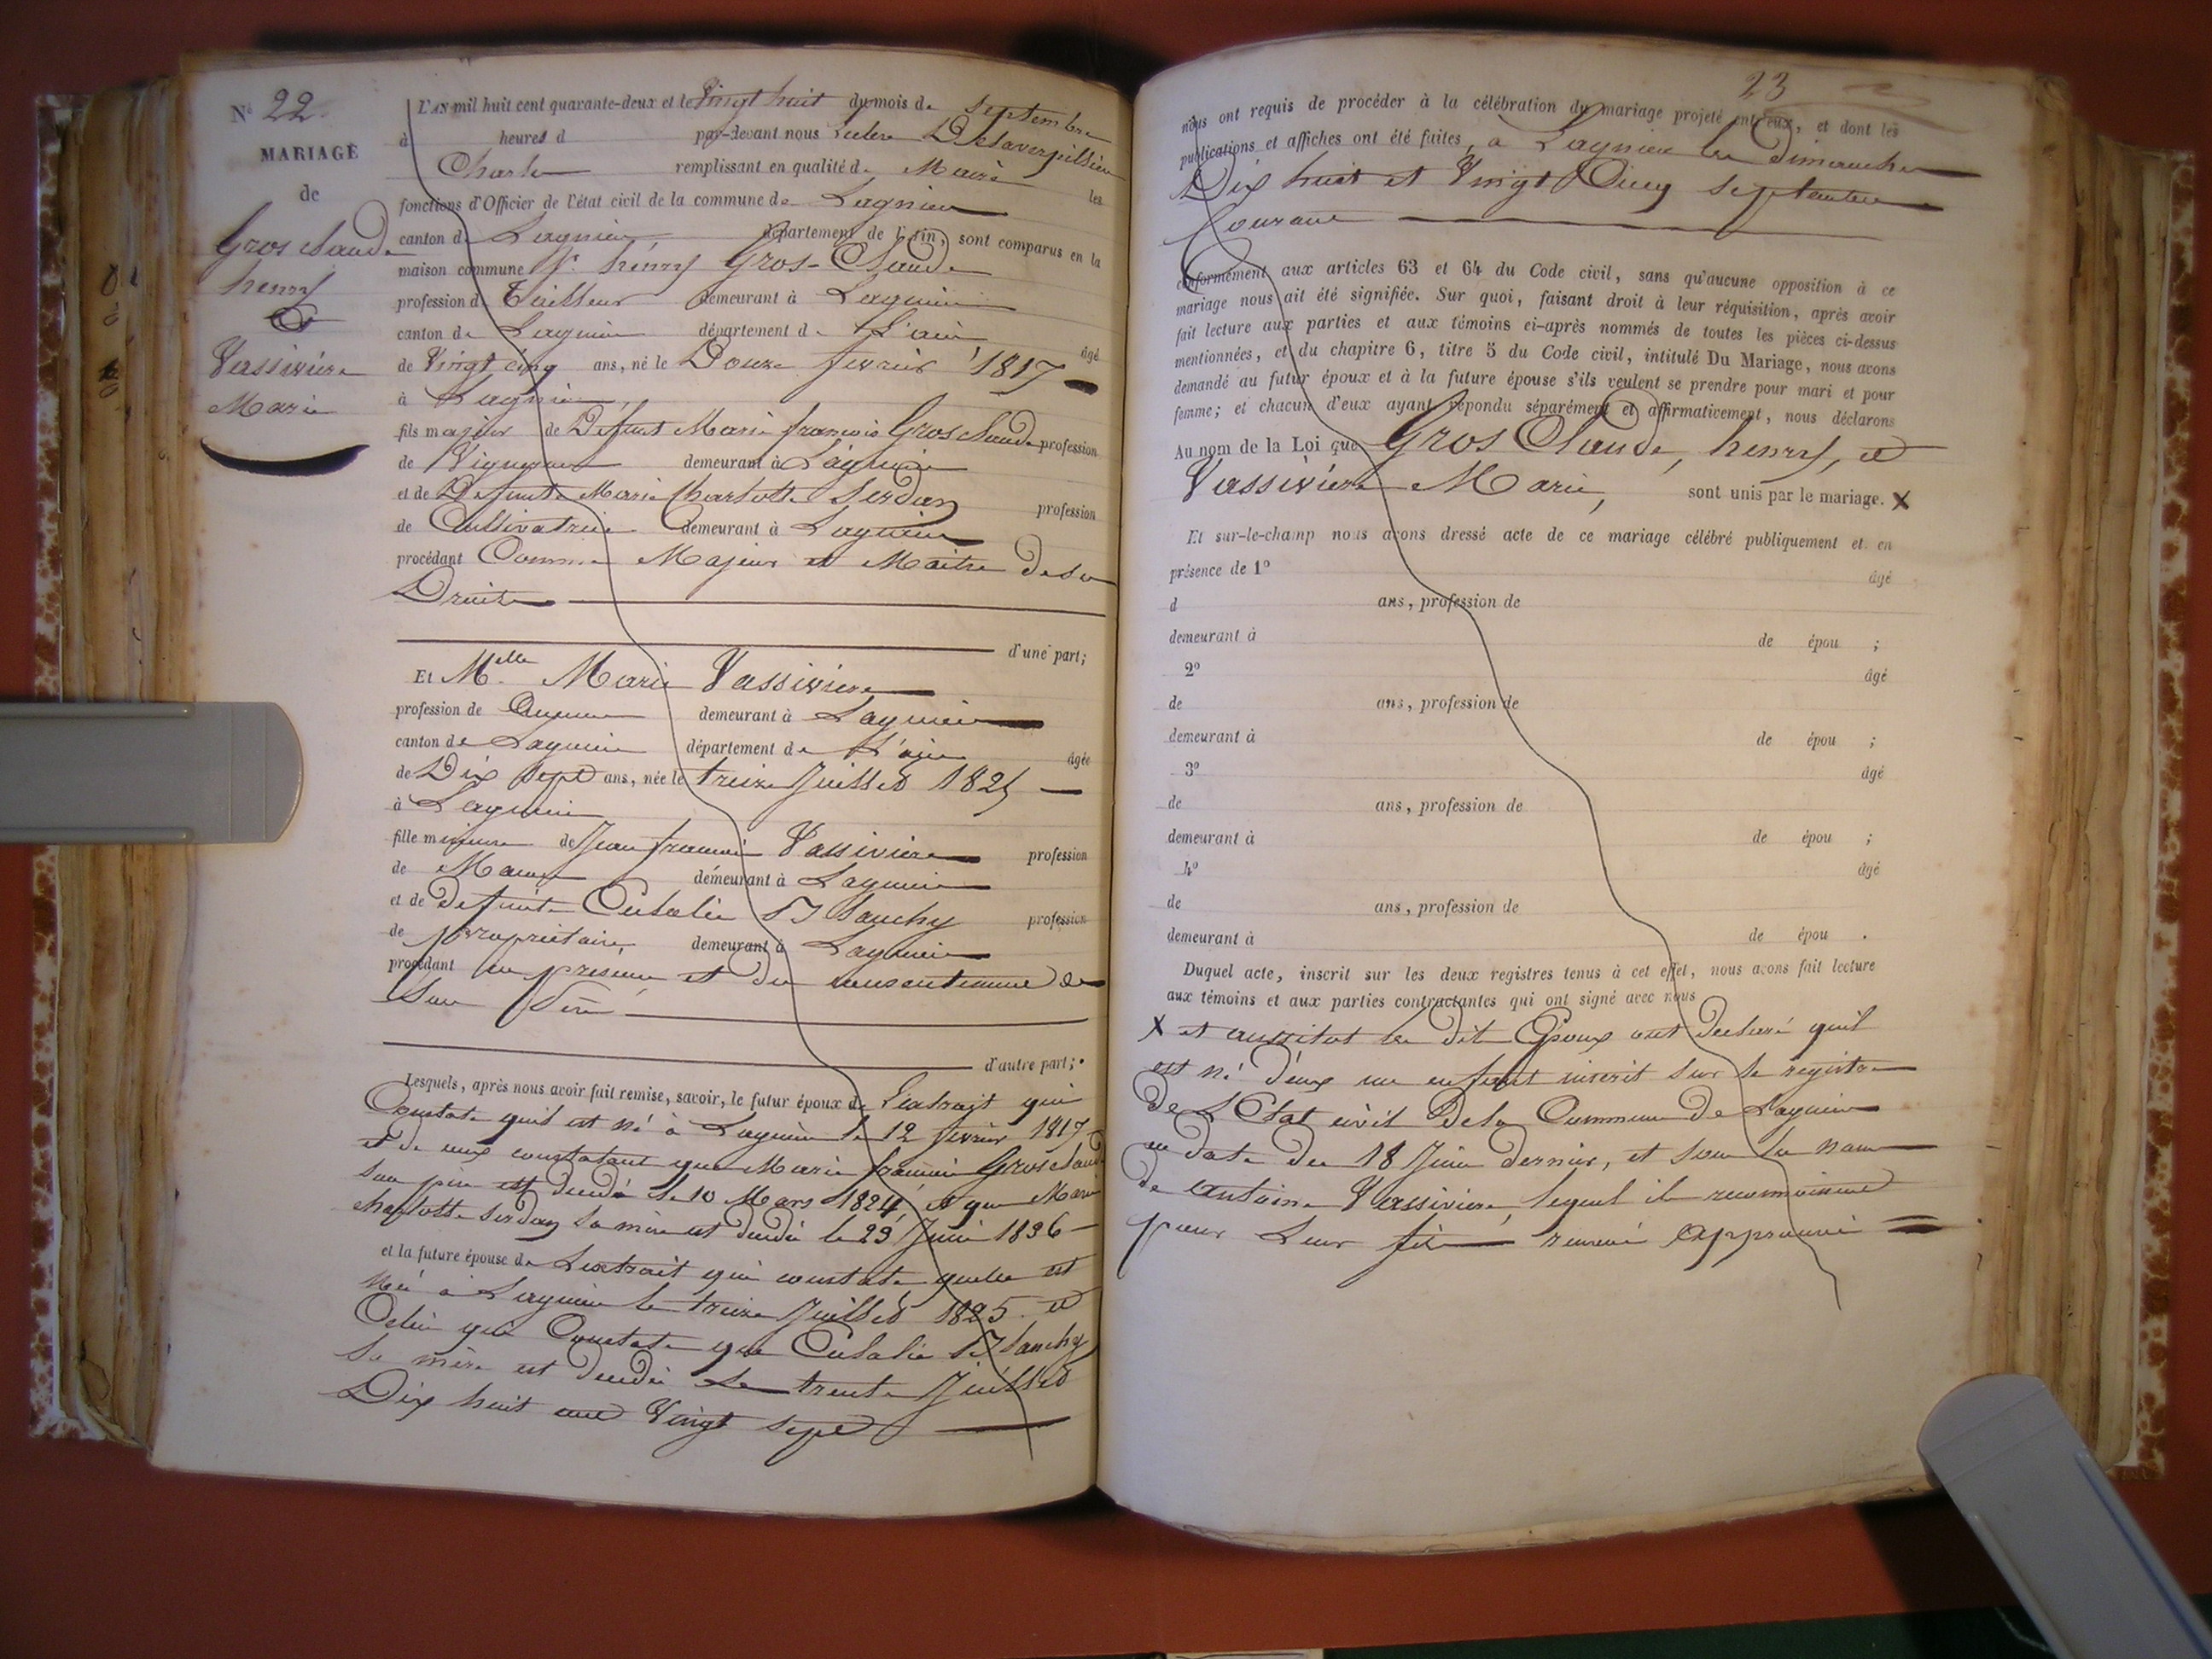 N° 22.
MARIAGE
de
Gros Claude
henry
Et
Vassiviere
Marie
L'AN mil huit cent quarante-deux et le Vingt huit du mois de Septembre
à heures d par-devant nous
Charles remplissant en qualité de Maire les
fonctions d'Officier de l'état civil de la commune de Lagnieu
canton de Lagnieu département de l'Ain, sont comparus en la
maison commune Sr. henry Gros-Claude
profession de tailleur demeurant à Lagnieu
canton de Lagnieu département de L'ain âgé
de Vingt cinq ans, né le Douze fevrier 1817
à Lagnieu,
fils majeur de Défunt Marie françois Gros Claude profession
de Vigneron demeurant à Lagnieu
et de Defunte Marie Charlotte Serdan profession
de Cultivatrice demeurant à Lagnieu
procédant Comme Majeur et Maitre de ses
Droits
d'une part;
Et Melle Marie Vassiviere
profession de Aucune demeurant à Lagnieu
canton de Lagnieu département de L'ain âgée
de Dix Sept ans, née le treize Juillet 1825
à Lagnieu
fille mineure de Jean francois Vassiviere profession
de demeurant à Lagnieu
et de defunte Eulalie profession
de propriétaire, demeurant à Lagnieu
procédant en présence et du consentement de
Son Père
d'autre part;
Lesquels, après nous avoir fait remise, savoir, le futur époux de L'extrait qui
Constate qu'il est né à Lagnieu le 12 fevrier 1817
et de ceux constatant que Marie francois Gros Claude
son pere est decedé le 10 Mars 1824, et que Marie
charlotte Serdan sa mère est decedée le 23 Juin 1836
et la future épouse de Lextrait qui constate quelle est
Née à Lagnieu le treize Juillet 1825. et
Celui qui Constate que Eulalie
Sa mère est decedée Le trente Juillet
Dix huit cent Vingt sept
23
nous ont requis de procéder à la célébration du mariage projeté entr'eux, et dont les
publications et affiches ont été faites, a Lagnieu les dimanches
Dix huit et Vingt Cinq septembre
Courant
conformément aux articles 63 et 64 du Code civil, sans qu'aucune opposition à ce
mariage nous ait été signifiée. Sur quoi, faisant droit à leur réquisition, après avoir
fait lecture aux parties et aux témoins ci-après nommés de toutes les pièces ci-dessus
mentionnées, et du chapitre 6, titre 5 du Code civil, intitulé Du Mariage, nous avons
demandé au futur époux et à la future épouse s'ils veulent se prendre pour mari et pour
femme; et chacun d'eux ayant répondu séparément et affirmativement, nous déclarons
Au nom de la Loi que Gros Claude, henry, et
Vassiviere Marie, sont unis par le mariage. X
Et sur-le-champ nous avons dressé acte de ce mariage célébré publiquement et en
présence de 1° âgé
d ans, profession de
demeurant à de épou ;
2° âgé
de ans, profession de
demeurant à de épou ;
3° âgé
de ans, profession de
demeurant à de épou ;
4° âgé
de ans, profession de
demeurant à de épou .
Duquel acte, inscrit sur les deux registres tenus à cet effet, nous avons fait lecture
aux témoins et aux parties contractantes qui ont signé avec nous
X et aussitot les dit Epoux ont declaré quil
est né d'eux un enfant inscrit sur le registre
de L'Etat civil De la Commune de Lagnieu
en date du 18 Juin dernier, et sous le nom
de antoine Vassiviere, lequel il reconnoissent
pour Leur fils renvoi approuvé